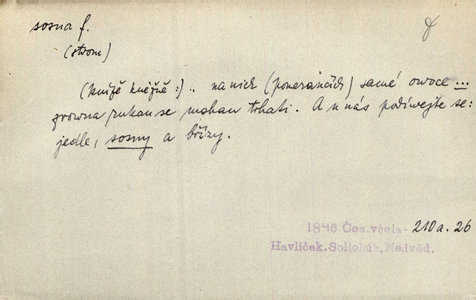 sosna f.
(strom)
(kníže kněžně:) .. na nich (pomerančích) samé owoce ...
rowna rukou se mohou trhati. A u nás podíwejte se:
jedle, sosny a břízy.
1846 Čes. včela - 210 a. 26
Havlíček. Sollohúb, Nedvěd.